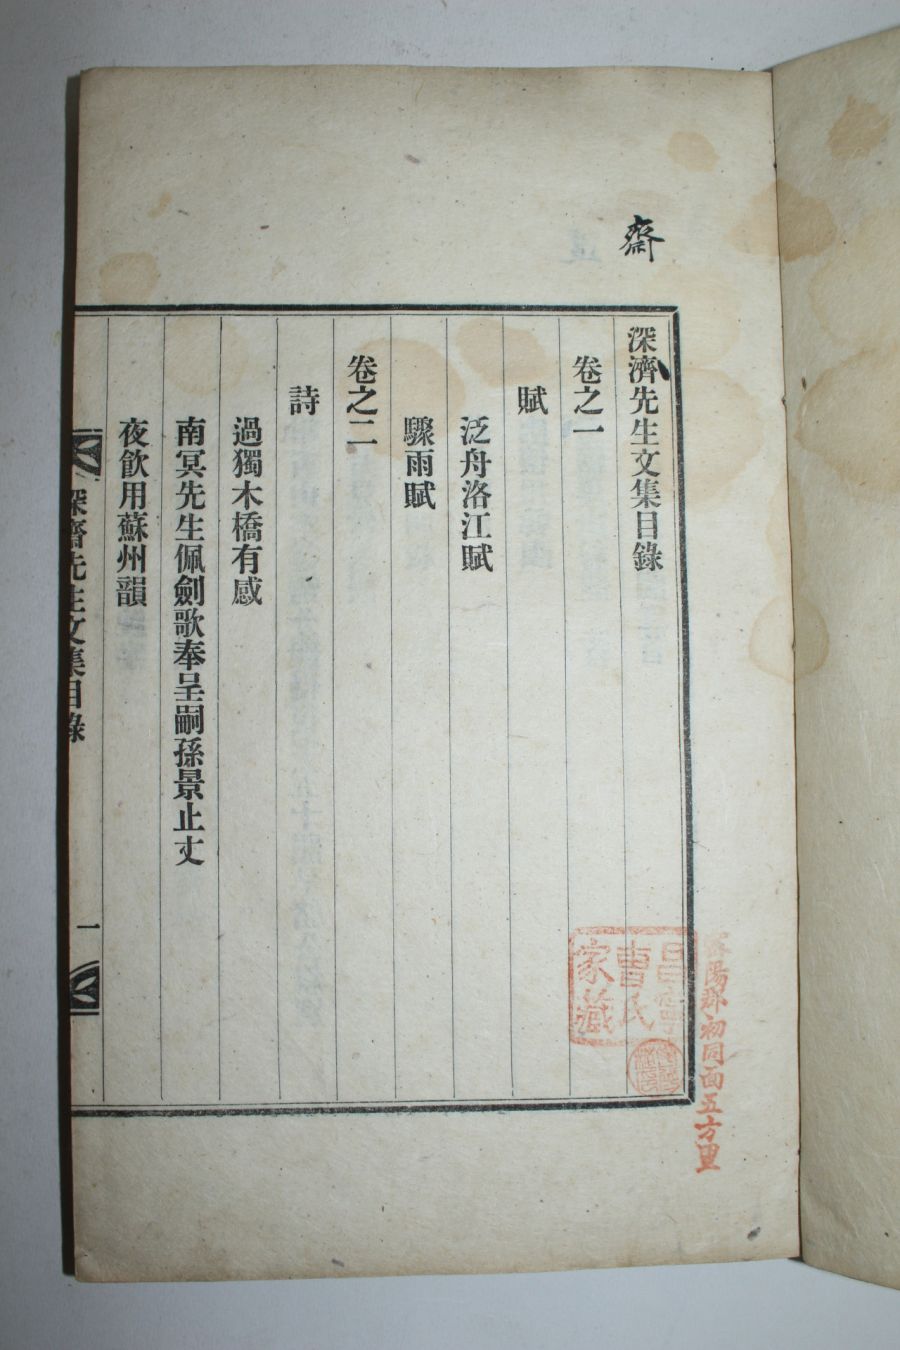 齋
深濟先生文集目錄
卷之一
賦
泛舟洛江賦
驟雨賦
卷之二
詩
過獨木橋有感
南冥先生佩劍歌奉呈嗣孫景止丈
夜飮用蘇州韻
深濟先生文集目錄
一
昌寧
曹氏
家藏
密陽郡初同面五方里